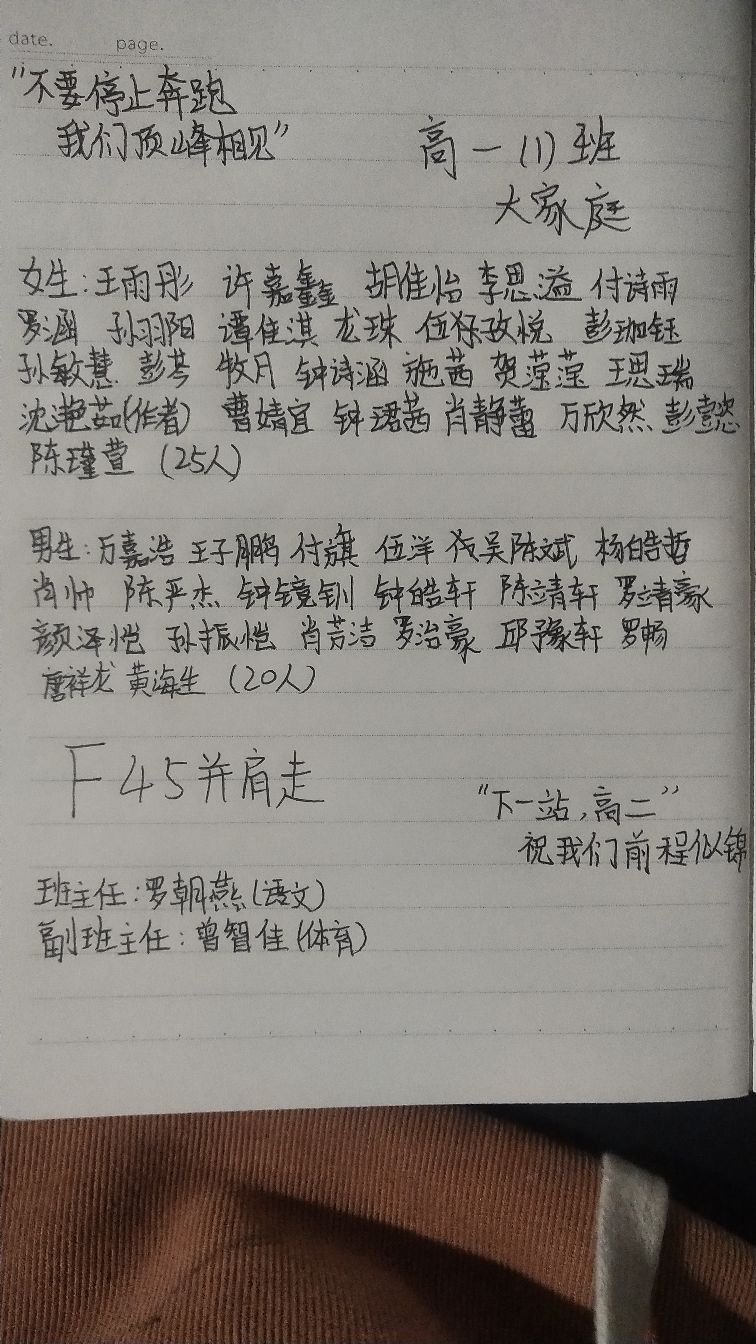 date. page.
"不要停止奔跑
我们顶峰相见"
高一(1)班
大家庭
女生:王雨彤 许嘉鑫 胡佳怡 李思溢 付诗雨
罗涵 孙羽阳 谭佳淇 龙珠 伍 孜悦 彭珈钰
孙敏慧 彭芩 牧月 钟诗涵 施茜 贺滢滢 王思瑞
沈滟茹(作者) 曹婧宜 钟珺茜 肖静蕾 万欣然 彭懿
陈瑾萱 (25人)
男生:万嘉浩 王子鹏 付旗 伍洋 吴陈斌 杨皓哲
肖帅 陈严杰 钟镜钏 钟皓轩 陈靖轩 罗靖豪
颜泽恺 孙振恺 肖芳洁 罗治豪 邱豫轩 罗畅
唐祥龙 黄海生 (20人)
F45并肩走
"下一站,高二"
祝我们前程似锦
班主任:罗朝燕(语文)
副班主任:曾智佳(体育)